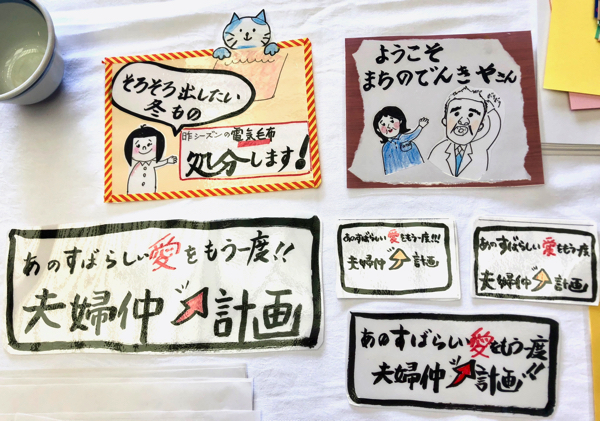 そろそろ出したい
冬もの
昨シーズンの電気毛布
処分します!
ようこそ
まちのでんきやさん
あのすばらしい愛をもう一度!!
夫婦仲計画
あのすばらしい愛をもう一度!!!
夫婦仲計画
あのすばらしい愛をもう一度
夫婦仲計画
あのすばらしい愛をもう一度!!
夫婦仲計画